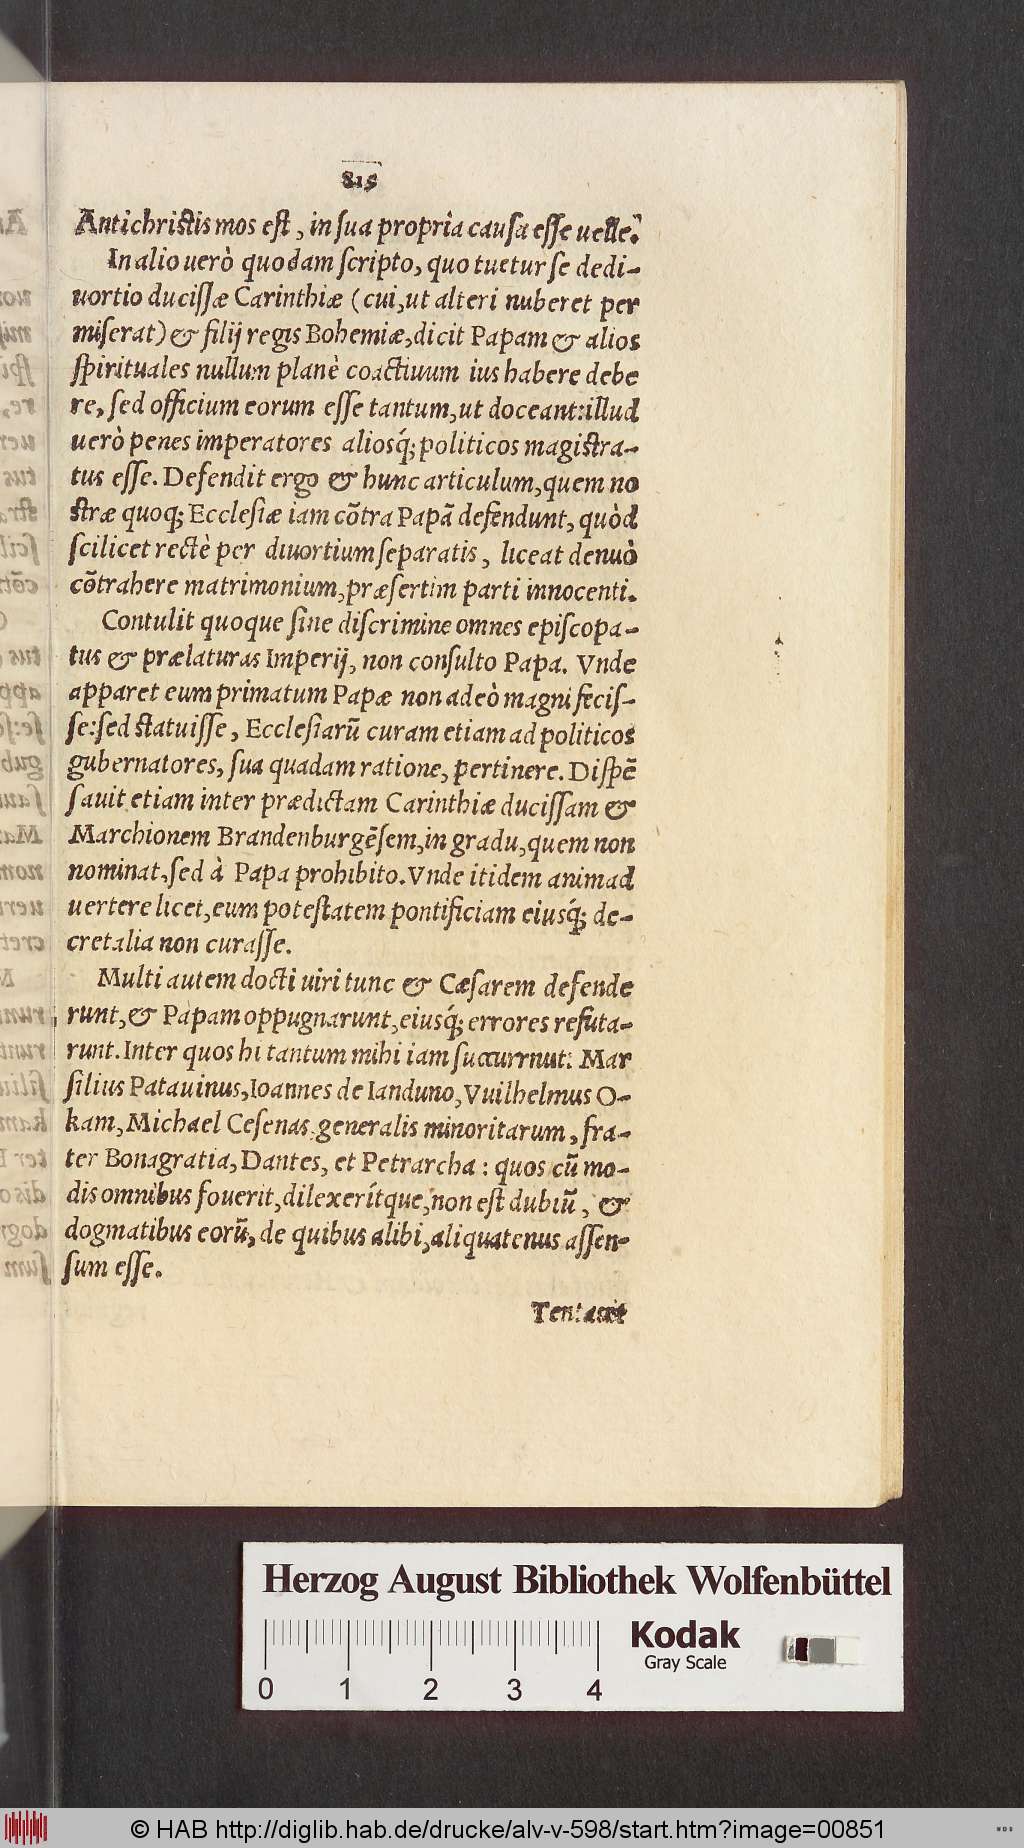 815
Antichristis mos est, in sua propria causa esse uelle.
In alio uerò quodam scripto, quo tuetur se de di-
uortio ducissæ Carinthiæ (cui, ut alteri nuberet per
miserat) & filij regis Bohemiæ, dicit Papam & alios
spirituales nullum planè coactiuum ius habere debe
re, sed officium eorum esse tantum, ut doceant: illud
uerò penes imperatores aliosq́; politicos magistra-
tus esse. Defendit ergo & hunc articulum, quem no
stræ quoq; Ecclesiæ iam cõtra Papã defendunt, quòd
scilicet rectè per diuortium separatis, liceat denuò
cõtrahere matrimonium, præsertim parti innocenti.
Contulit quoque sine discrimine omnes episcopa-
tus & prælaturas Imperij, non consulto Papa. Vnde
apparet eum primatum Papæ non adeò magni fecis-
se: sed statuisse, Ecclesiarũ curam etiam ad politicos
gubernatores, sua quadam ratione, pertinere. Dispẽ
sauit etiam inter prædictam Carinthiæ ducissam &
Marchionem Brandenburgẽsem, in gradu, quem non
nominat, sed à Papa prohibito. Vnde itidem animad
uertere licet, eum potestatem pontificiam eiusq́; de-
cretalia non curasse.
Multi autem docti uiri tunc & Cæsarem defende
runt, & Papam oppugnarunt, eiusq́; errores refuta-
runt. Inter quos hi tantum mihi iam succurrnut: Mar
silius Patauinus, Ioannes de Ianduno, Vuilhelmus O-
kam, Michael Cesenas generalis minoritarum, fra-
ter Bonagratia, Dantes, et Petrarcha: quos cũ mo-
dis omnibus fouerit, dilexerítque, non est dubiũ, &
dogmatibus eorũ, de quibus alibi, aliquatenus assen-
sum esse.
Tentauit
Herzog August Bibliothek Wolfenbüttel
Kodak
Gray Scale
0 1 2 3 4
© HAB http://diglib.hab.de/drucke/alv-v-598/start.htm?image=00851